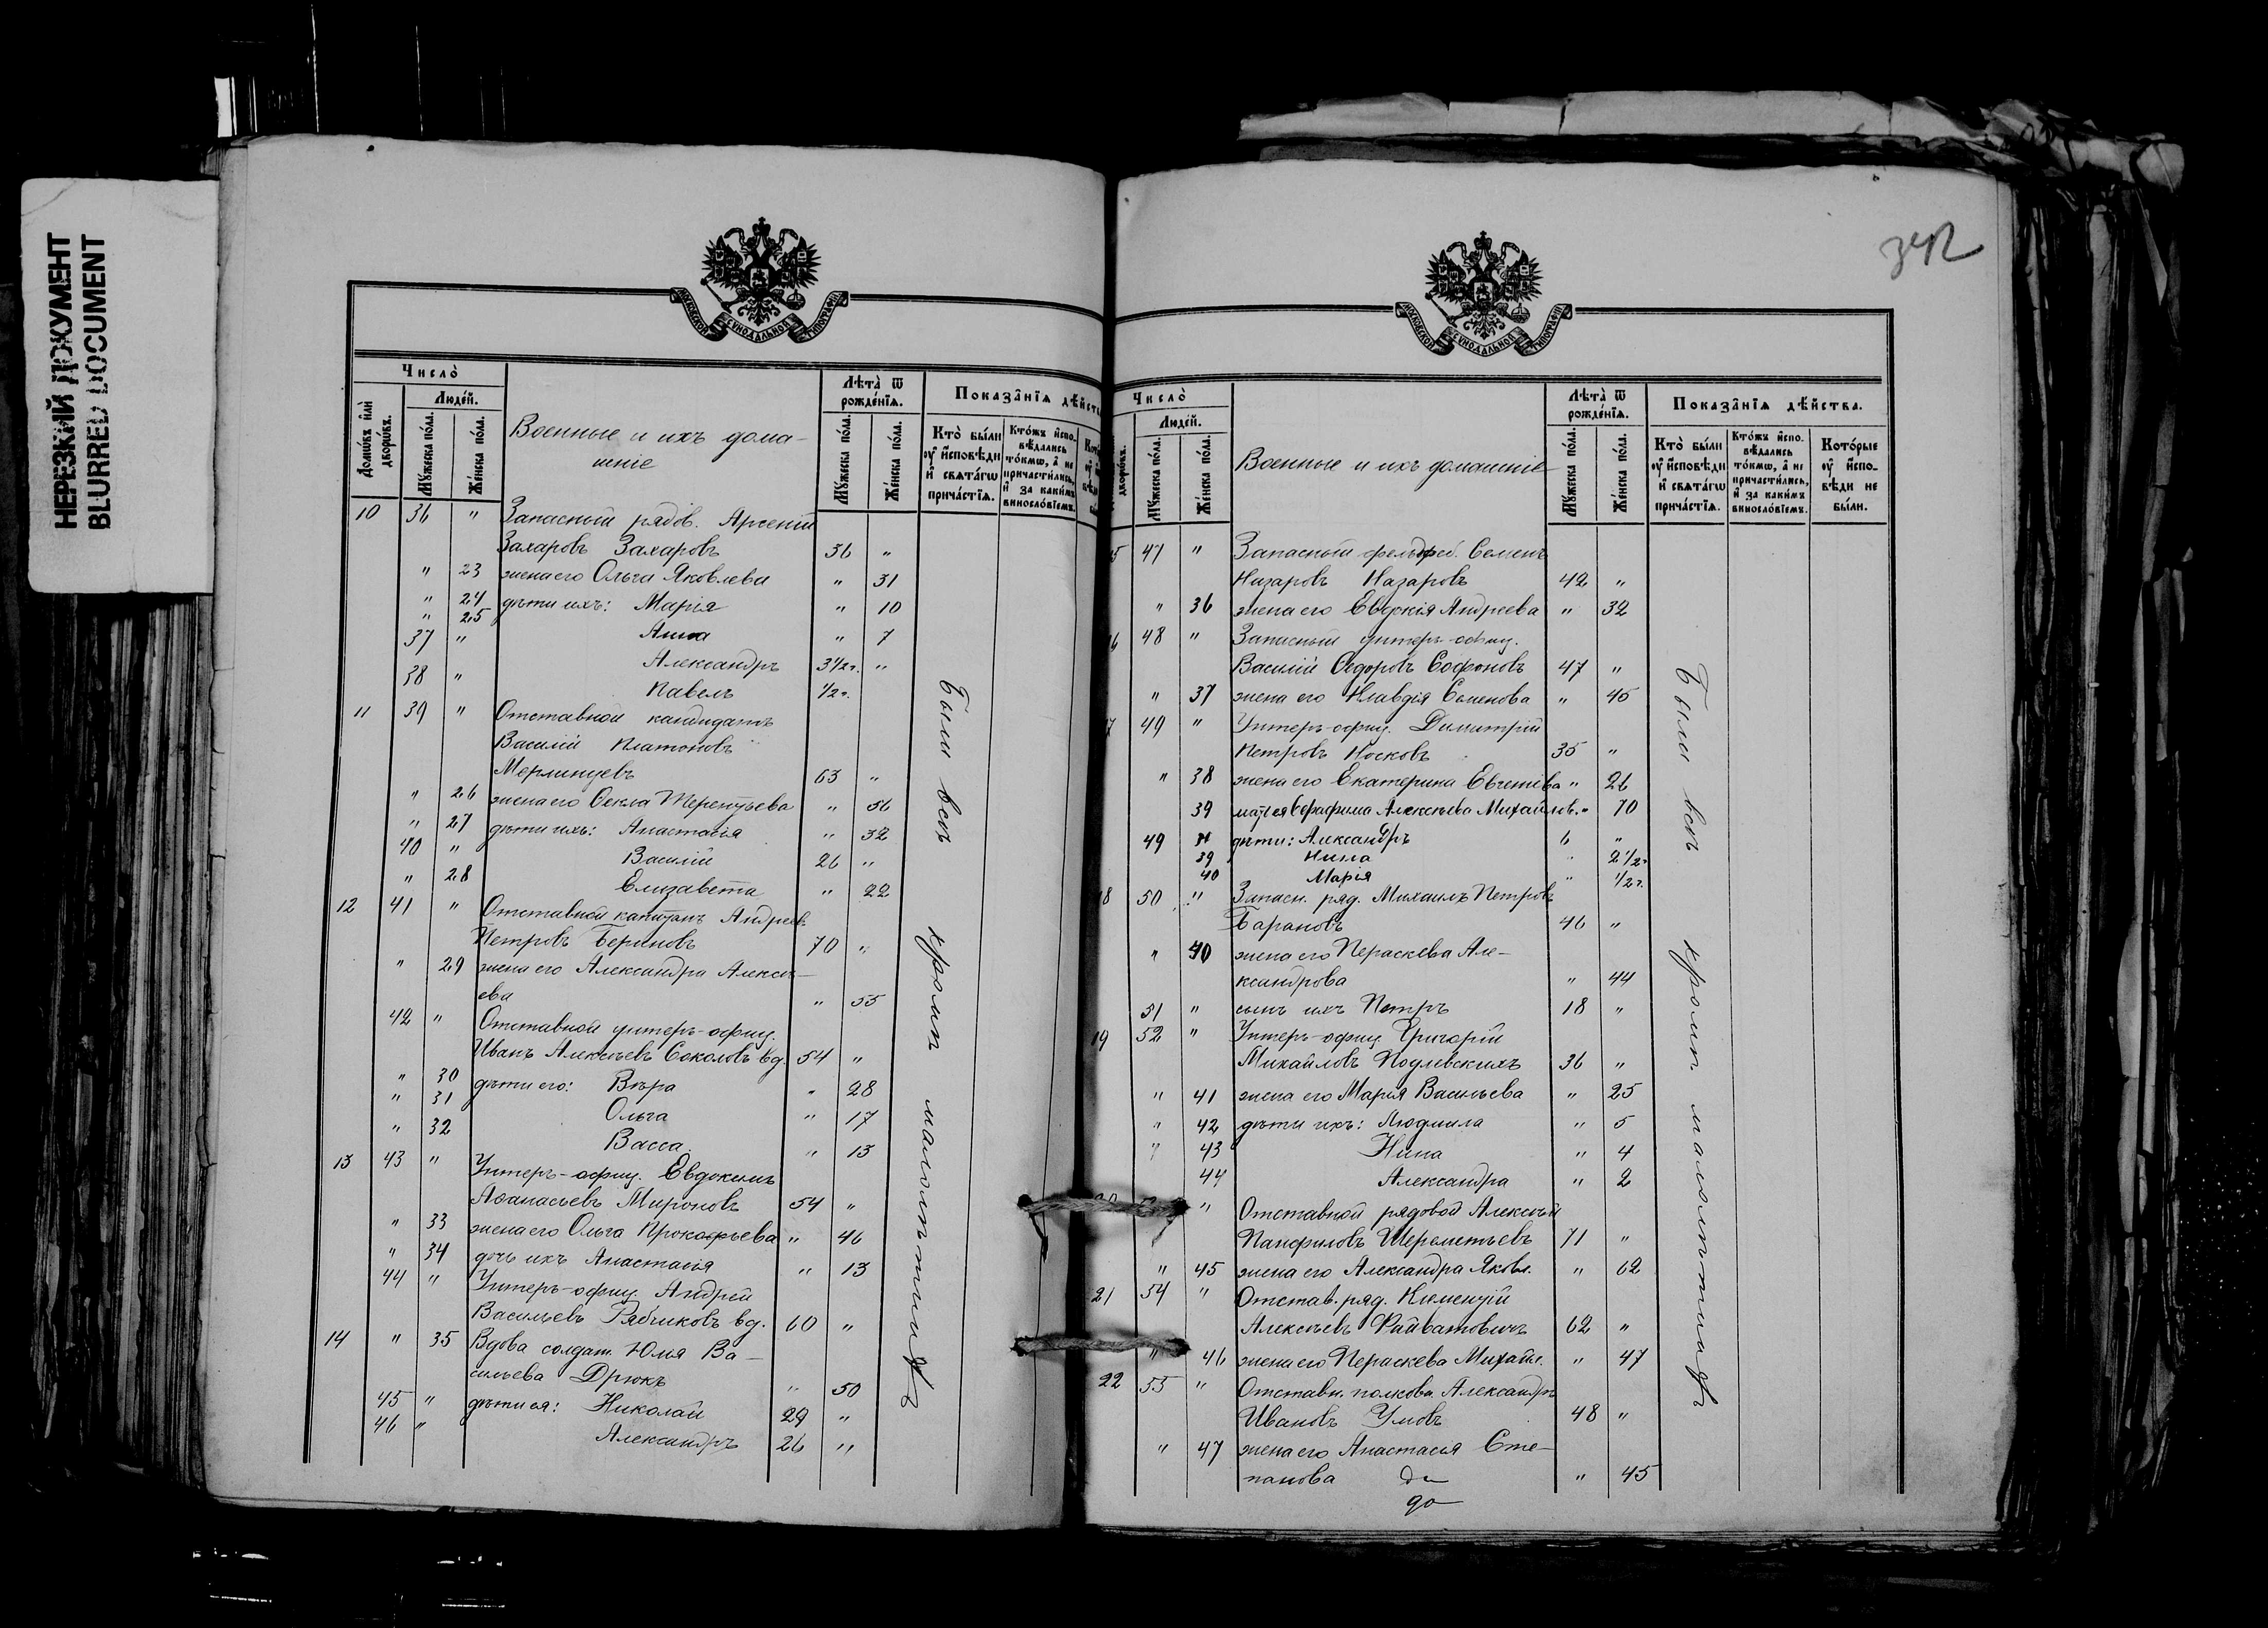 НЕРЕЗКИЙ ДОКУМЕНТ
BLURRED DOCUMENT
МОСКОВСКОЙ СѴНОДАЛЬНОЙ ТИПОГРАФІИ
Число̀
Лѣта̀ ѿ рожде́нїѧ.
Показа̑нїѧ дѣйств
Домѡ́въ и҆лѝ дворѡ́въ.
Люде́й.
Мꙋ́жеска по́ла.
Же́нска по́ла.
Военные и ихъ дома-
шніе
Мꙋ́жеска по́ла.
Же́нска по́ла.
Кто̀ бы́ли ᲂу҆ и҆сповѣди и҆ свѧта́гѡ прича́стїѧ.
Кто́жъ и҆споѵѣдались то́кмѡ, а҆ не причасти́лись, и҆ за каки́мъ винословїемъ.
10 36 " Запасный рядов. Арсеній
Захаровъ Захаровъ 36 "
" 23 жена его Ольга Яковлева " 31
" 24 дѣти ихъ: Марія " 10
" 25 Анна " 7
37 " Александръ 3½ г. "
38 " Павелъ ½ г.
11 39 " Отставной кандидатъ
Василій Платоновъ
Мерлинцевъ 63 "
" 26 жена его Ѳекла Терентьева " 56
" 27 дѣти ихъ: Анастасія " 32
40 " Василій 26 "
" 28 Елизавета " 22
12 41 " Отставной капитанъ Андрей
Петровъ Бериновъ 70 "
" 29 жена его Александра Алексѣ-
ева " 55
42 " Отставной унтеръ-офиц.
Иванъ Алексѣевъ Соколовъ вд. 54 "
" 30 дѣти его: Вѣра " 28
" 31 Ольга " 17
" 32 Васса " 13
13 43 " Унтеръ-офиц. Евдокимъ
Аѳанасьевъ Мироновъ 54 "
" 33 жена его Ольга Прокофьева " 46
" 34 дочь ихъ Анастасія " 13
44 " Унтеръ-офиц. Андрей
Васильевъ Рябчиковъ вд. 60 "
14 " 35 Вдова солдат. Юлія Ва-
сильева Дрюкъ " 50
45 " дѣти ея: Николай 29 "
46 " Александръ 26 "
Были всѣ кромѣ малолѣтнихъ
342
МОСКОВСКОЙ СѴНОДАЛЬНОЙ ТИПОГРАФІИ
Число̀
Лѣта̀ ѿ рожде́нїѧ.
Показа̑нїѧ дѣ́йства.
дворѡ́въ.
Люде́й.
Мꙋ́жеска по́ла.
Же́нска по́ла.
Военные и ихъ домашніе
Мꙋ́жеска по́ла.
Же́нска по́ла.
Кто̀ бы́ли ᲂу҆ и҆сповѣди и҆ свѧта́гѡ прича́стїѧ.
Кто́жъ и҆сповѣдались то́кмѡ, а҆ не причасти́лись, и҆ за каки́мъ винословїемъ.
Кото́рые ᲂу҆ и҆сповѣди не бы́ли.
5 47 " Запасный фельдфеб. Семенъ
Назаровъ Назаровъ 42 "
" 36 жена его Евдокія Андреева " 32
6 48 " Запасный унтеръ-офиц.
Василій Ѳедоровъ Софоновъ 47 "
" 37 жена его Клавдія Семенова " 45
7 49 " Унтеръ-офиц. Димитрій
Петровъ Носковъ 35 "
" 38 жена его Екатерина Евгеніева " 26
39 мать ея Серафима Алексѣева Михайлов. " 70
49 дѣти: Александръ 6 "
39 Нина " 2½ г.
40 Марія " ½ г.
18 50 " Запасн. ряд. Михаилъ Петровъ
Барановъ 46 "
" 40 жена его Параскева Але-
ксандрова " 44
51 " сынъ ихъ Петръ 18 "
19 52 " Унтеръ-офиц. Григорій
Михайловъ Подлевскихъ 36 "
" 41 жена его Марія Васильева " 25
" 42 дѣти ихъ: Людмила " 5
" 43 Нина " 4
44 Александра " 2
" Отставной рядовой Алексѣй
Панфиловъ Шереметьевъ 71 "
" 45 жена его Александра Яковл. " 62
21 54 " Отстав. ряд. Климентій
Алексѣевъ Файватовичъ 62 "
" 46 жена его Параскева Михайл. " 47
22 55 " Отставн. полковн. Александръ
Ивановъ Умовъ 48 "
" 47 жена его Анастасія Сте-
панова " 45
Были всѣ кромѣ малолѣтнихъ